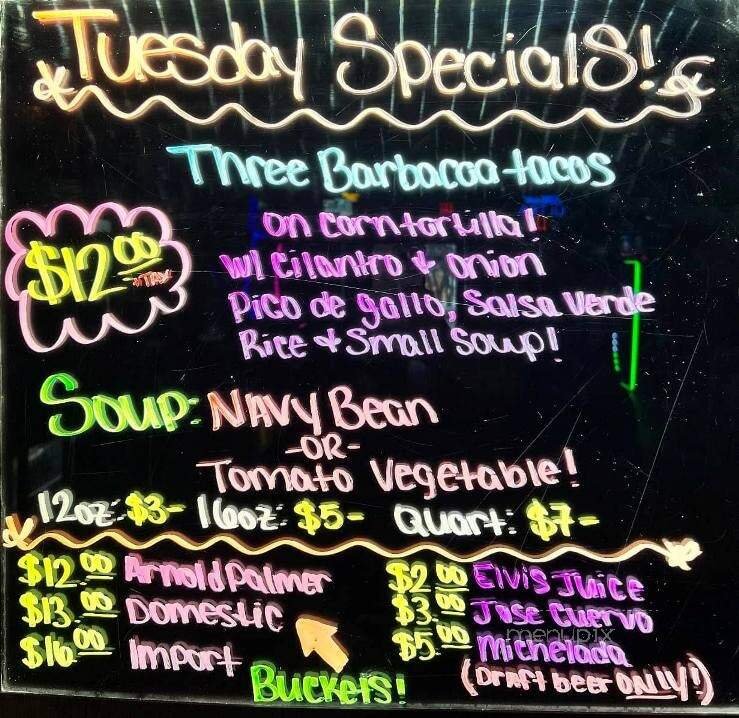 Tuesday Specials!
Three Barbacoa tacos
on corn tortilla!
$12.00 +TAX
w/ cilantro + onion
Pico de gallo, Salsa Verde
Rice + Small Soup!
Soup: Navy Bean
-OR-
Tomato Vegetable!
12oz: $3- 16oz: $5- Quart: $7-
$12.00 Arnold Palmer
$13.00 Domestic
$16.00 Import
Buckets!
$2.00 Elvis Juice
$3.00 Jose Cuervo
$5.00 Michelada
(Draft beer ONLY!)
menupix